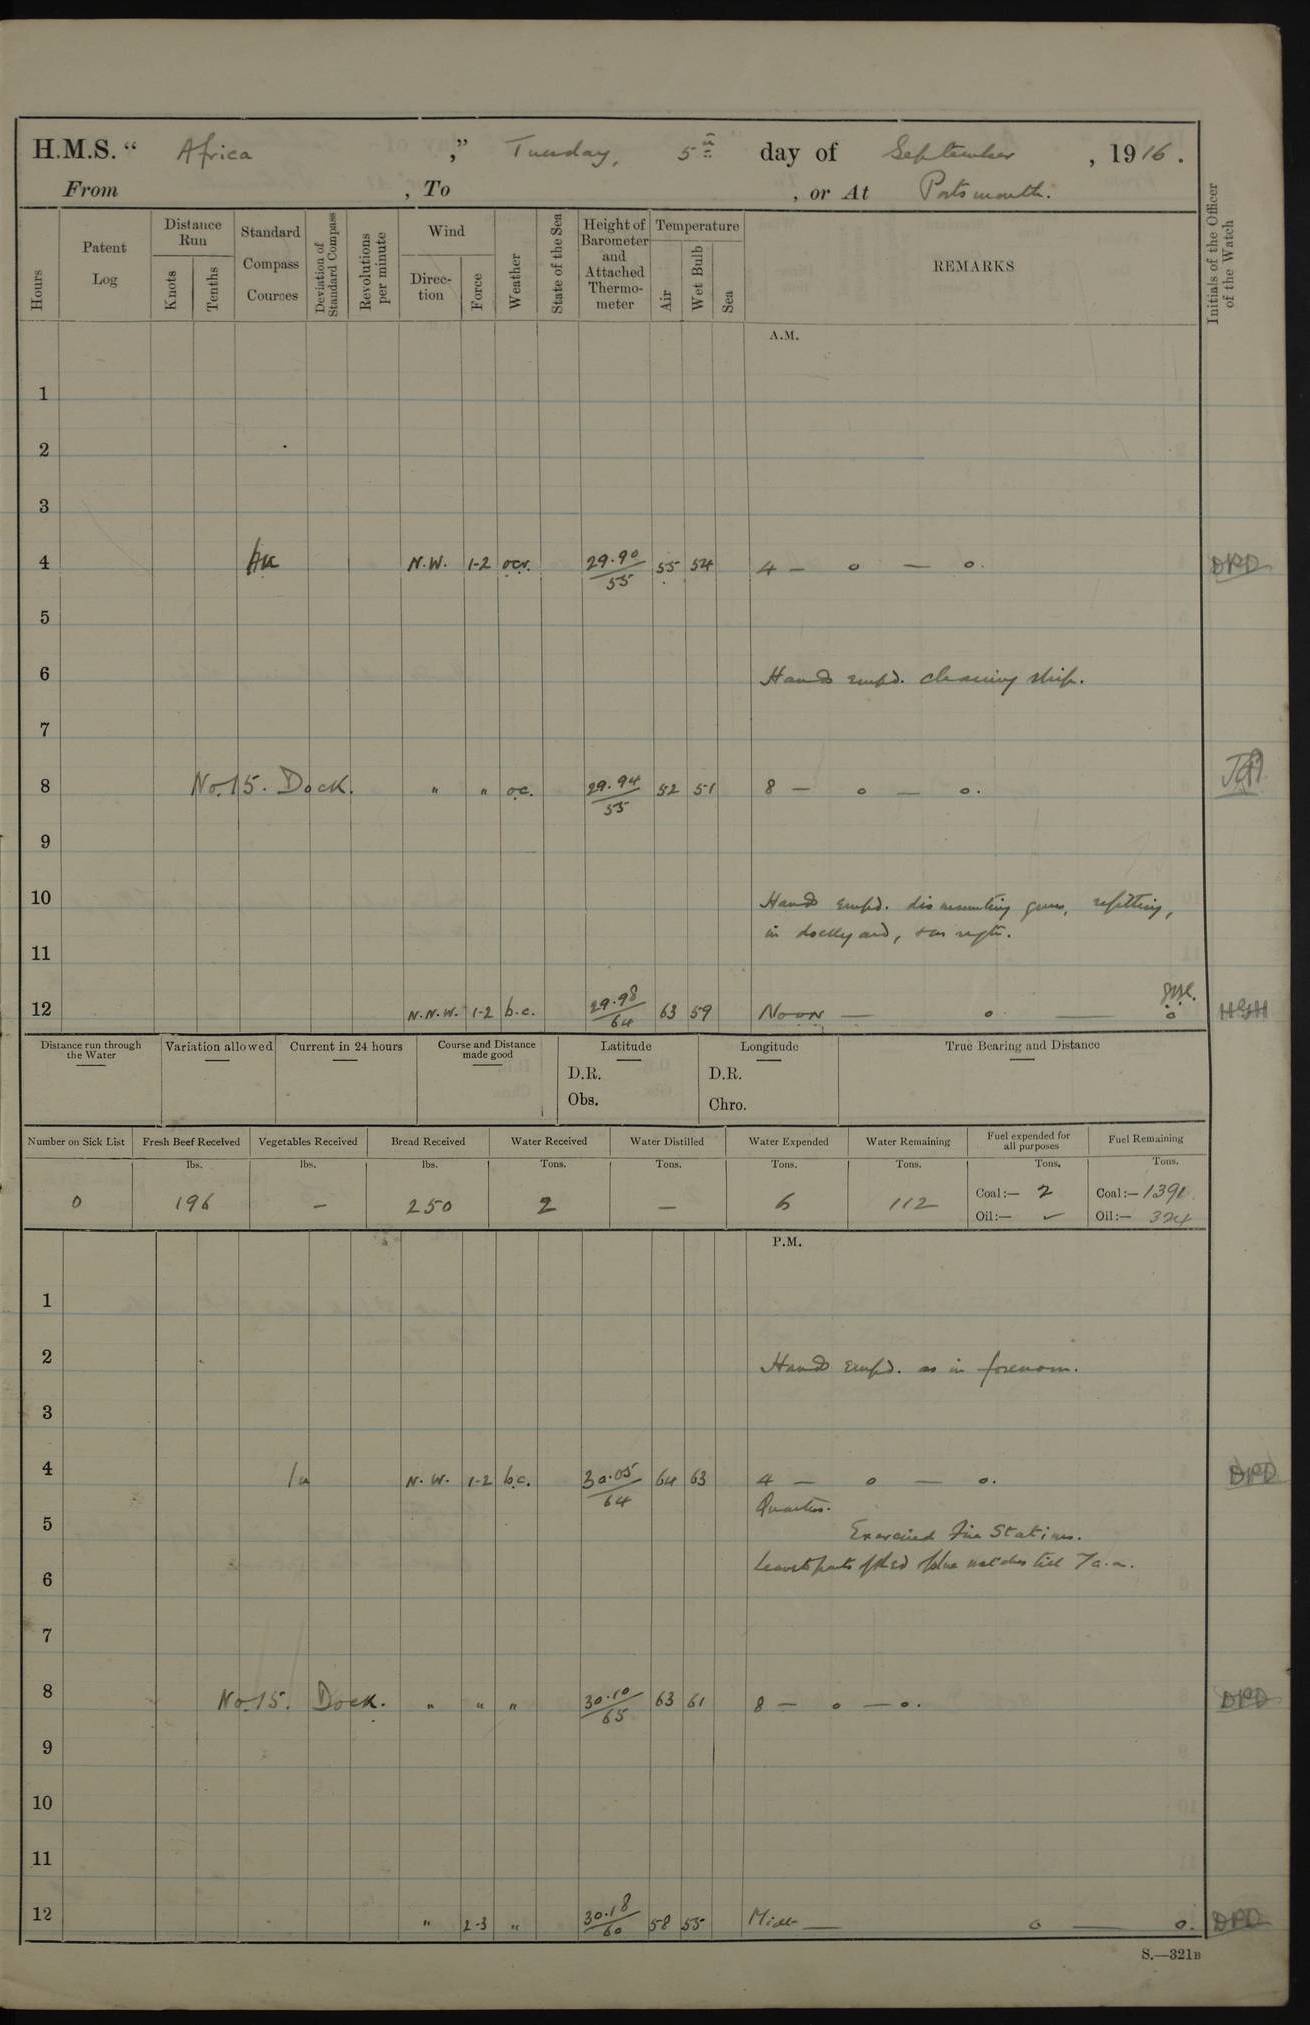 H.M.S. " Africa ," Tuesday, 5th day of September , 1916.
From , To , or At Portsmouth.
Hours
Patent Log
Distance Run
Knots
Tenths
Standard Compass Courses
Deviation of Standard Compass
Revolutions per minute
Wind
Direction
Force
Weather
State of the Sea
Height of Barometer and Attached Thermometer
Temperature
Air
Wet Bulb
Sea
REMARKS
Initials of the Officer of the Watch
A.M.
1
2
3
4 N.W. 1-2 ocr. 29.90/55 55 54 4 — o — o. DPD
5
6 Hands empd. cleaning ship.
7
8 No. 15. Dock. " " oc. 29.94/55 52 51 8 — o — o.
9
10 Hands empd. dismounting guns, refitting,
in dockyard, & as reqte.
11
12 N.N.W. 1-2 b.c. 29.98/64 63 59 Noon — o — o HGH
Distance run through the Water
Variation allowed
Current in 24 hours
Course and Distance made good
Latitude
D.R.
Obs.
Longitude
D.R.
Chro.
True Bearing and Distance
Number on Sick List Fresh Beef Received Vegetables Received Bread Received Water Received Water Distilled Water Expended Water Remaining Fuel expended for all purposes Fuel Remaining
lbs. lbs. lbs. Tons. Tons. Tons. Tons. Tons. Tons.
0 196 — 250 2 — 6 112 Coal:— 2 Coal:— 1391
Oil:— ✓ Oil:— 324
P.M.
1
2 Hands empd. as in forenoon.
3
4 In N.W. 1-2 b.c. 30.05/64 64 63 4 — o — o. DPD
Quarters.
5 Exercised Fire Stations.
Leave to part of Red & blue watches till 7 a.m.
6
7
8 No. 15. Dock. " " " 30.10/65 63 61 8 — o — o. DPD
9
10
11
12 " 2-3 " 30.18/60 58 55 Midt — o — o. DPD
S.—321B